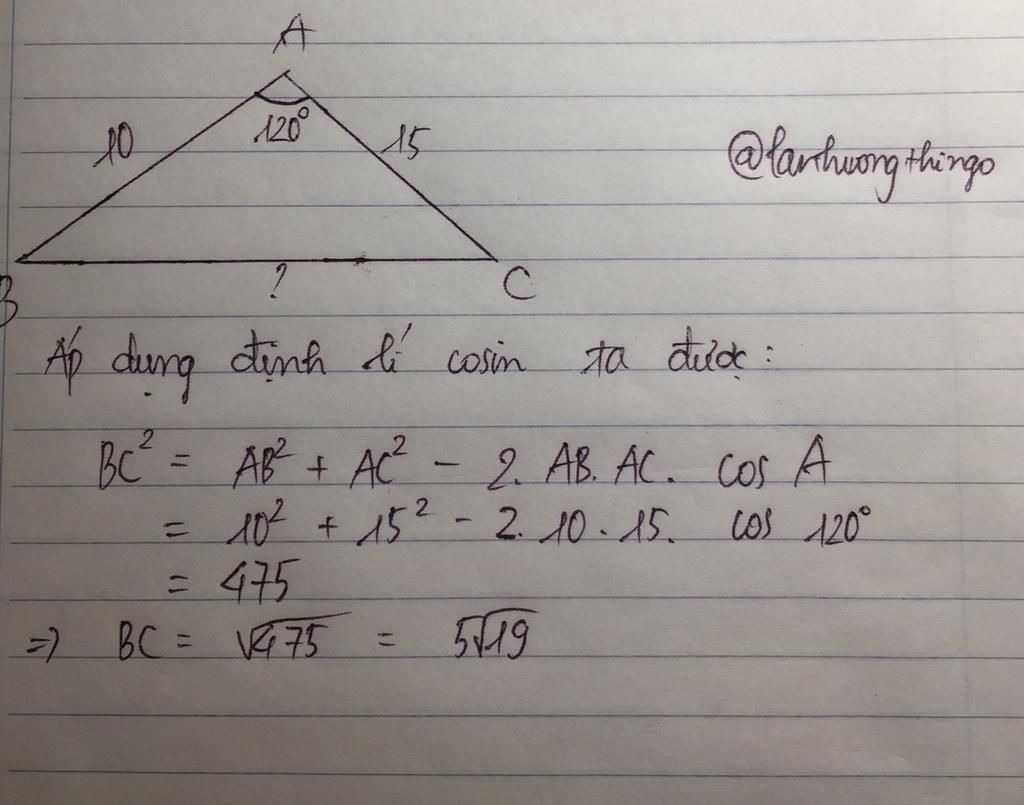 A
10
120°
15
@lanhuongthingo
B
?
C
Áp dụng định lí cosin ta được:
BC² = AB² + AC² - 2. AB. AC. cos A
= 10² + 15² - 2. 10 . 15. cos 120°
= 475
=> BC = √475 = 5√19